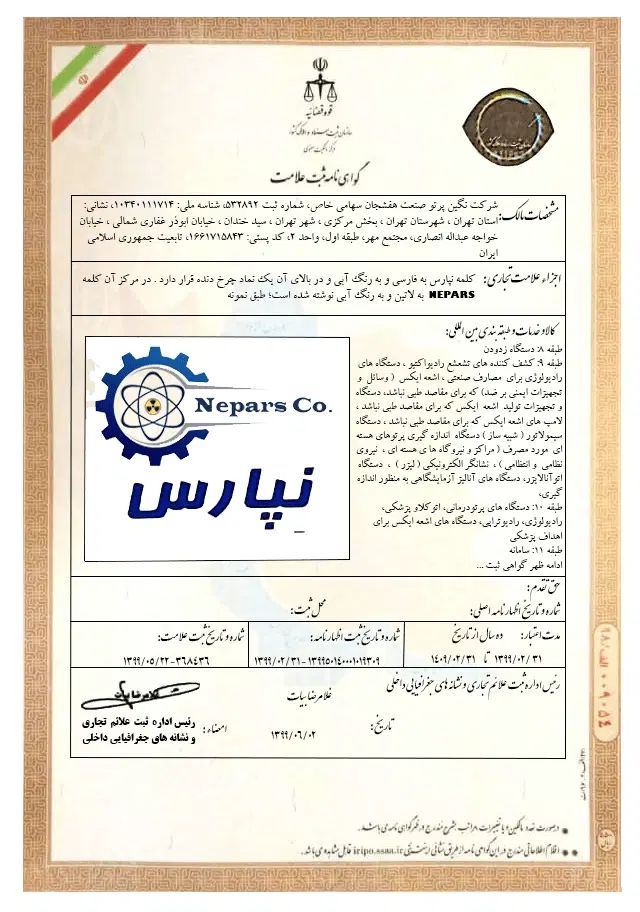 قوه قضائیه
سازمان ثبت اسناد و املاک کشور
مرکز مالکیت معنوی
گواهی نامه ثبت علامت
مشخصات مالک:
شرکت نگین پرتو صنعت هفشجان سهامی خاص، شماره ثبت ۵۳۲۸۹۲، شناسه ملی: ۱۰۳۴۰۱۱۱۷۱۴، نشانی:
استان تهران ، شهرستان تهران ، بخش مرکزی ، شهر تهران ، سید خندان ، خیابان ابوذر غفاری شمالی ، خیابان
خواجه عبداله انصاری، مجتمع مهر، طبقه اول، واحد ۲، کد پستی: ۱۶۶۱۷۱۵۸۴۳، تابعیت جمهوری اسلامی
ایران
اجزاء علامت تجاری: کلمه نپارس به فارسی و به رنگ آبی و در بالای آن یک نماد چرخ دنده قرار دارد . در مرکز آن کلمه
NEPARS به لاتین و به رنگ آبی نوشته شده است؛ طبق نمونه
کالا و خدمات و طبقه بندی بین المللی:
طبقه ۸: دستگاه زدودن
طبقه ۹: کشف کننده های تشعشع رادیواکتیو ، دستگاه های
رادیولوژی برای مصارف صنعتی ، اشعه ایکس ( وسائل و
تجهیزات ایمنی بر ضد) که برای مقاصد طبی نباشد، دستگاه
و تجهیزات تولید اشعه ایکس که برای مقاصد طبی نباشد ،
لامپ های اشعه ایکس که برای مقاصد طبی نباشد ، دستگاه
سیمولاتور ( شبیه ساز ) دستگاه اندازه گیری پرتوهای هسته
ای مورد مصرف ( مراکز و نیروگاه ها ی هسته ای ، نیروی
نظامی و انتظامی ) ، نشانگر الکترونیکی ( لیزر ) ، دستگاه
اتوآنالایزر، دستگاه های آنالیز آزمایشگاهی به منظور اندازه
گیری،
طبقه ۱۰: دستگاه های پرتودرمانی، اتوکلاو پزشکی،
رادیولوژی، رادیوتراپی، دستگاه های اشعه ایکس برای
اهداف پزشکی
طبقه ۱۱: سامانه
ادامه ظهر گواهی ثبت ...
Nepars Co.
نپارس
حق تقدم:
شماره و تاریخ اظهارنامه اصلی: محل ثبت:
مدت اعتبار: ده سال از تاریخ
۱۳۹۹/۰۲/۳۱ تا ۱۴۰۹/۰۲/۳۱
شماره و تاریخ ثبت اظهارنامه:
۱۳۹۹/۰۲/۳۱-۱۳۹۹۵۰۱۴۰۰۰۱۰۱۹۳۰۹
شماره و تاریخ ثبت علامت:
۱۳۹۹/۰۵/۲۲-۳۶۸۴۳۶
رئیس اداره ثبت علائم تجاری و نشانه های جغرافیایی داخلی
غلامرضا بیات
تاریخ: ۱۳۹۹/۰۶/۰۲
امضاء:
غلامرضا بیات
رئیس اداره ثبت علائم تجاری
و نشانه های جغرافیایی داخلی
درصورت تعدد مالکین و یا تغییرات مراتب بشرح مندرج در ظهر گواهی نامه می باشد.
اقلام اطلاعاتی مندرج در این گواهی نامه از طریق نشانی اینترنتی iripo.ssaa.ir قابل مشاهده می باشد.